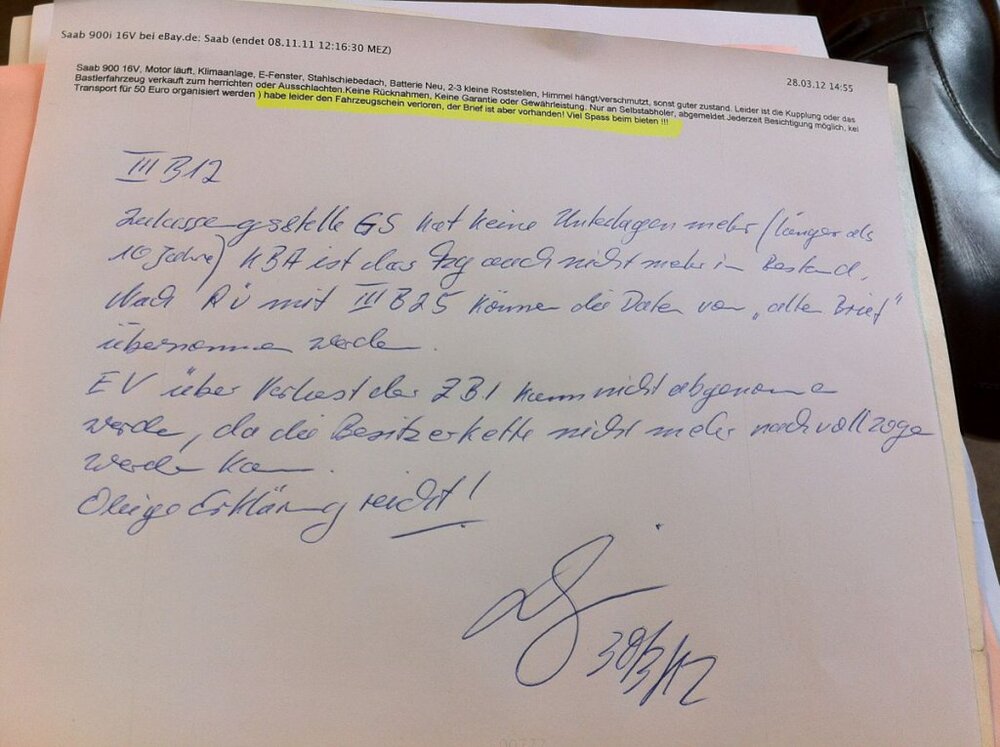 Saab 900i 16V bei eBay.de: Saab (endet 08.11.11 12:16:30 MEZ)
28.03.12 14:55
Saab 900 16V, Motor läuft, Klimaanlage, E-Fenster, Stahlschiebedach, Batterie Neu, 2-3 kleine Roststellen, Himmel hängt/verschmutzt, sonst guter zustand. Leider ist die Kupplung oder das
Bastlerfahrzeug verkauft zum herrichten oder Ausschlachten.Keine Rücknahmen, Keine Garantie oder Gewährleistung. Nur an Selbstabholer, abgemeldet.Jederzeit Besichtigung möglich, kei
Transport für 50 Euro organisiert werden ) habe leider den Fahrzeugschein verloren, der Brief ist aber vorhanden! Viel Spass beim bieten !!!
III B12
Zulassungsstelle GS hat keine Unterlagen mehr (länger als
10 Jahre) KBA ist das Fzg auch nicht mehr im Bestand.
Nach RÜ mit III B25 können die Daten vom „alten Brief"
übernommen werden.
EV über Verlust der ZB1 kann nicht abgenommen
werden, da die Besitzerkette nicht mehr nachvollzogen
werden kann.
Obige Erklärung reicht!
30/3/12